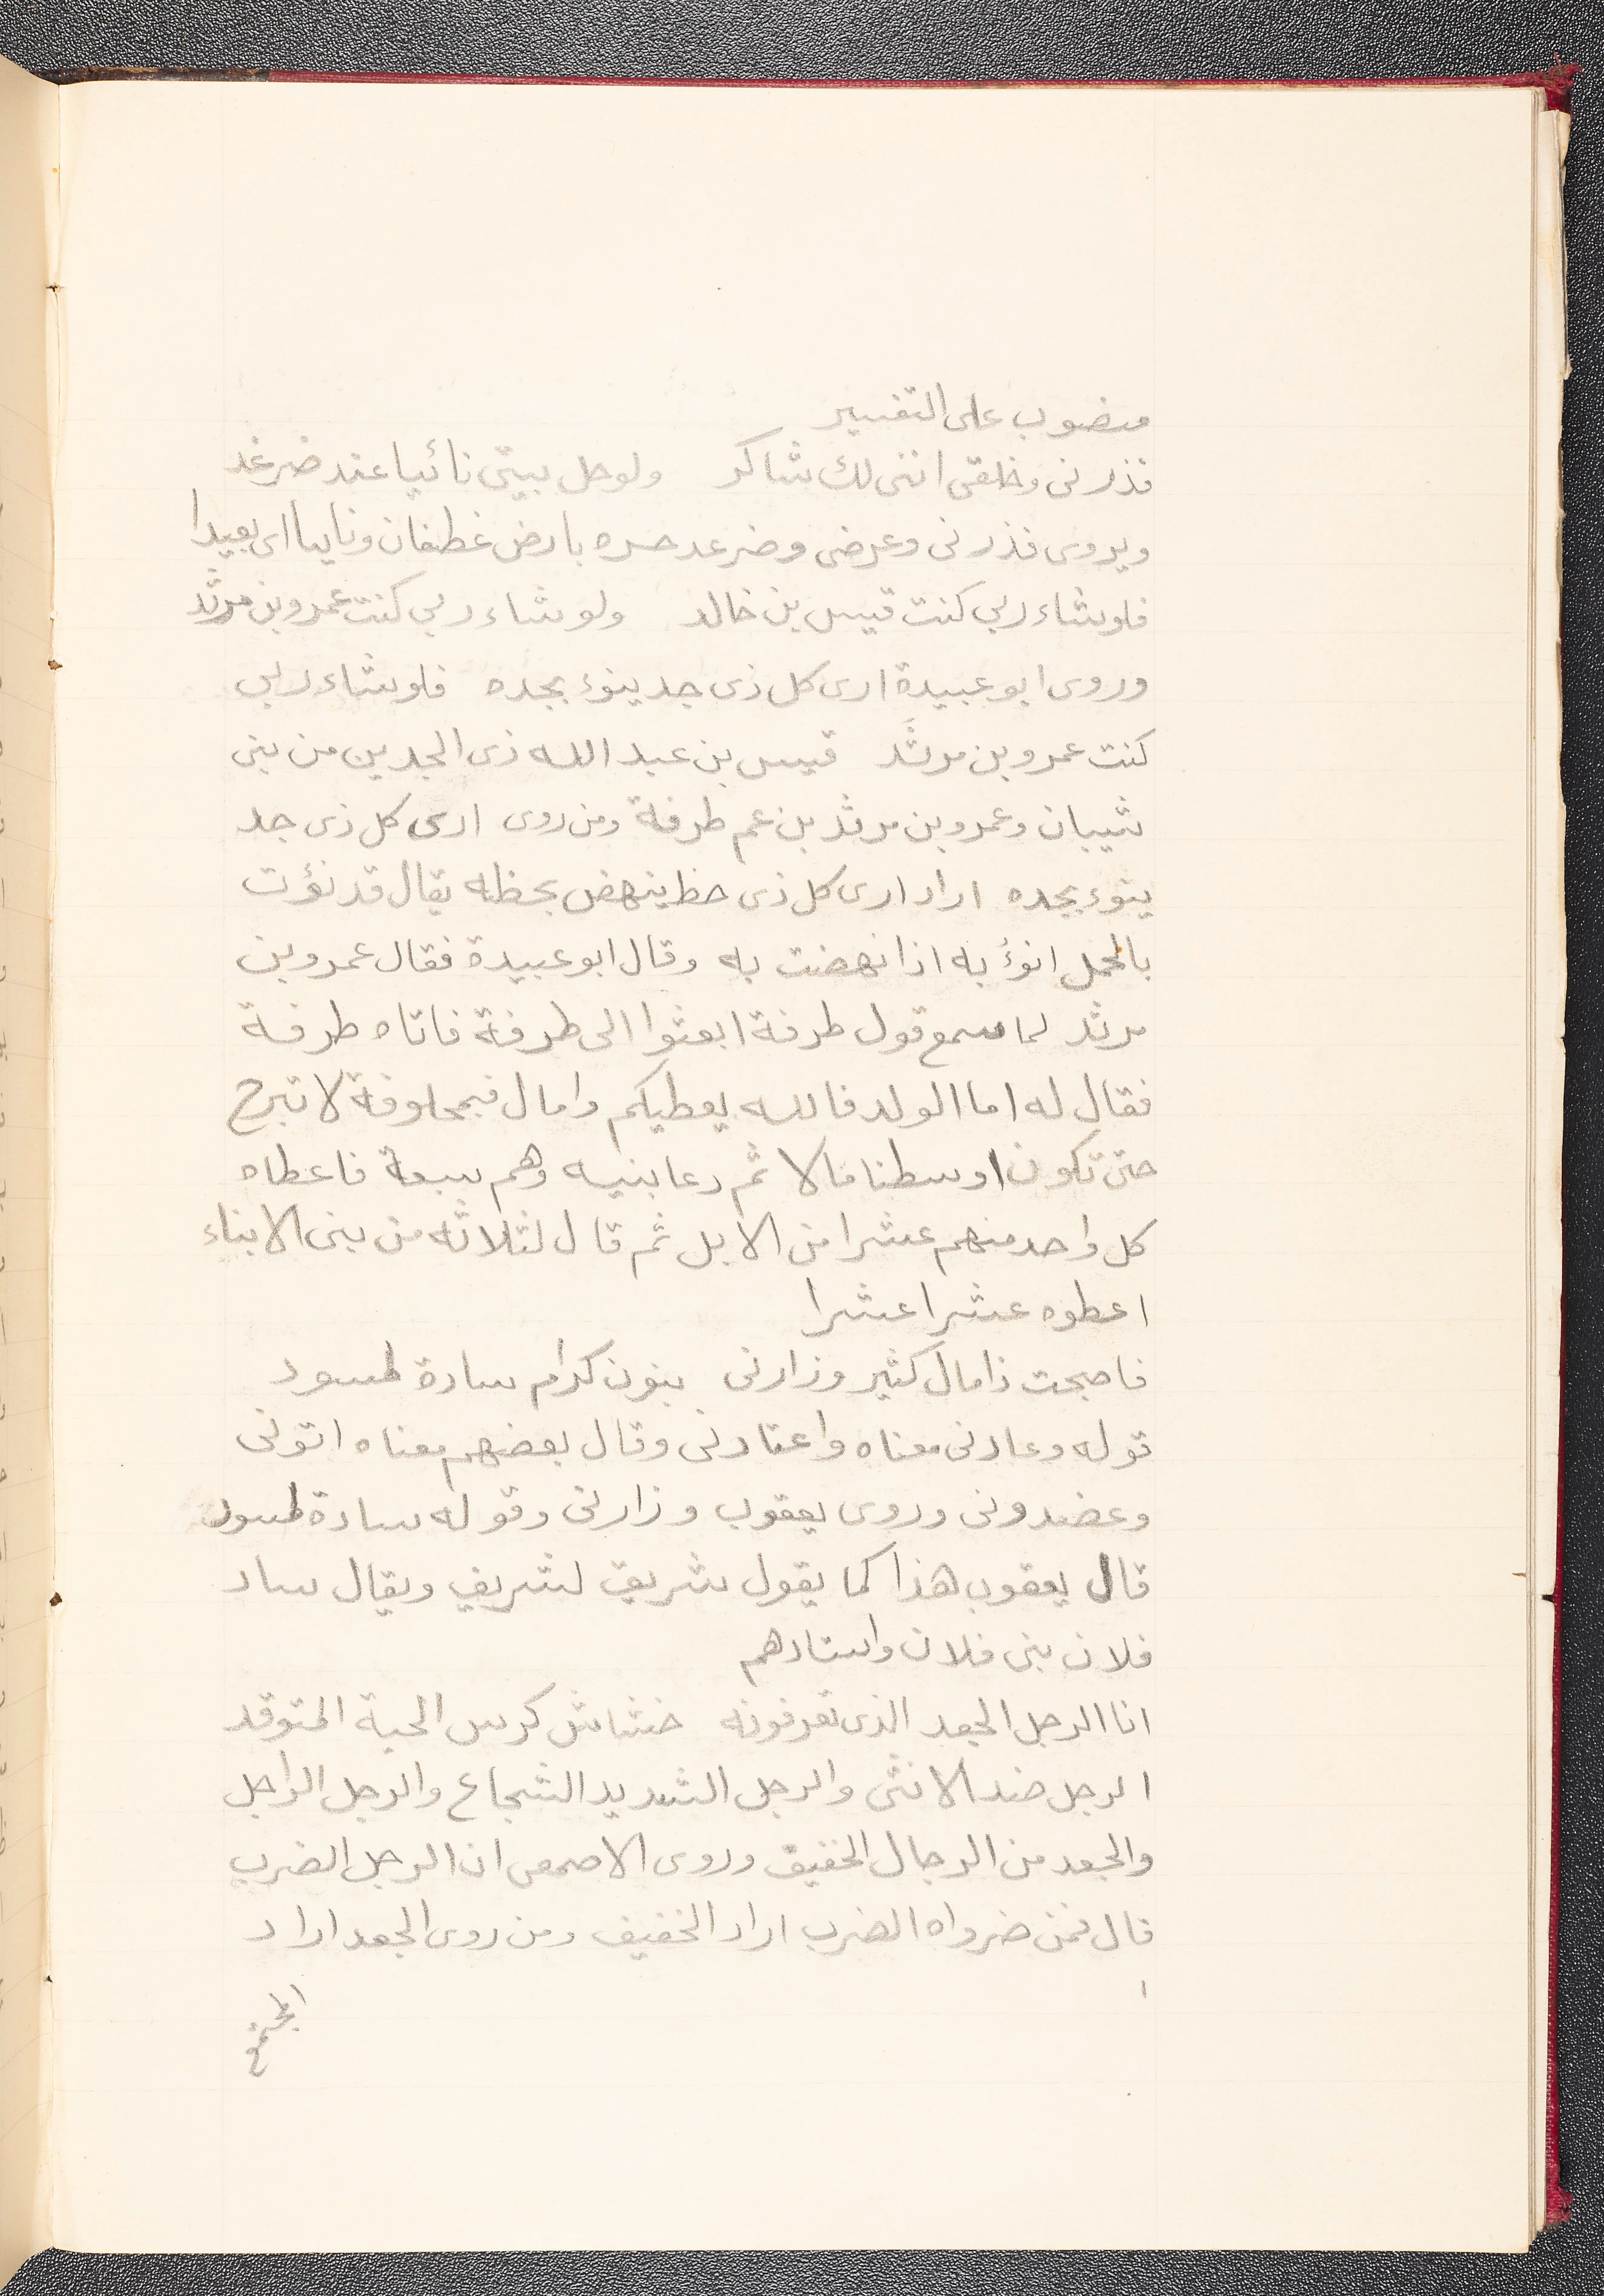 منصوب على التفسير
فذرنى وخلقى اننى لك شاكر ولو حل بيتى نائيا عند ضرغد
ويروى فذرنى وعرضى وضرغد حره بارض غطفان ونايياا اى بعيدا
فلو شاء ربي كنت قيس بن خالد ولو شاء ربي كنت عمرو بن مرثد
وروى ابو عبيدة ارى كل ذى جد ينوء بجده فلو شاء ربي
كنت عمرو بن مرثَد قيس بن عبد الله ذى الجدين من بنى
شيبان وعمرو بن مرثد بن عم طرفة ومن روى ارى كل ذى جد
ينوء بجده اراد ارى كل ذى حظ ينهض بحظه يقال قد نؤت
بالحمل انوؤ به اذا نهضت به وقال ابو عبيدة فقال عمرو بن
مرثد لما سمع قول طرفة ابعثوا الى طرفة فاتاه طرفة
فقال له اما الولد فالله يعطيكم وامال فبمحلوفة لا تبرح
حتى تكون اوسطنا مالا ثم دعا بنيه وهم سبعة فاعطاه
كل واحد منهم عشرا من الابل ثم قال لثلاثه من بنى الابناء
اعطوه عشرا عشرا
فاصبحت ذا مال كثير وزارنى بنون كرام سادة لمسود
قوله وعادنى معناه واعتادنى وقال بعضهم معناه اتونى
وعضدونى وروى يعقوب وزارنى وقوله سادة لمسود
قال يعقوب هذا كما يقول شريف لشريف ويقال ساد
فلان بنى فلان واستادهم
انا الرجل الجعد الذى تعرفونه خشاش كرس الحية المتوقد
الرجل ضد الانثى والرجل الشديد الشجاع والرجل الراجل
والجعد من الرجال الخفيف وروى الاصمعى انا الرجل الضرب
قال فمن ضرواه الضرب اراد الخفيف ومن روى الجعد اراد
ا
المجتمع